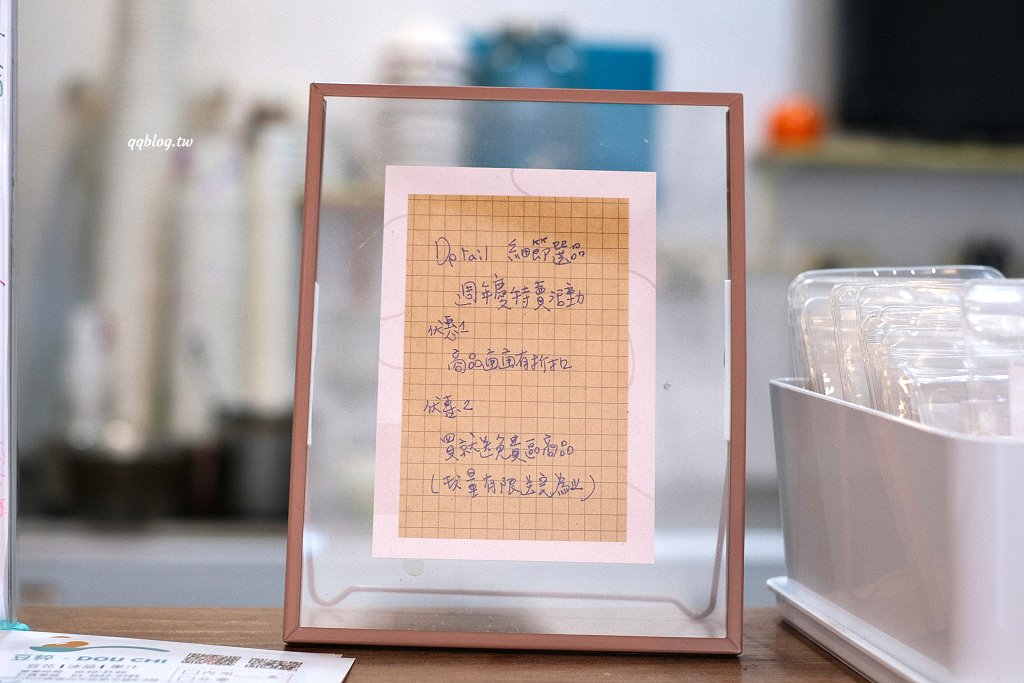 qqblog.tw
Detail 細節選品
週年慶特賣活動
優惠1
商品通通有折扣
优惠2
買就送免費區商品
(數量有限送完為止)
豆粹·DOU CHI
豆花 | 冰品 | 果汁